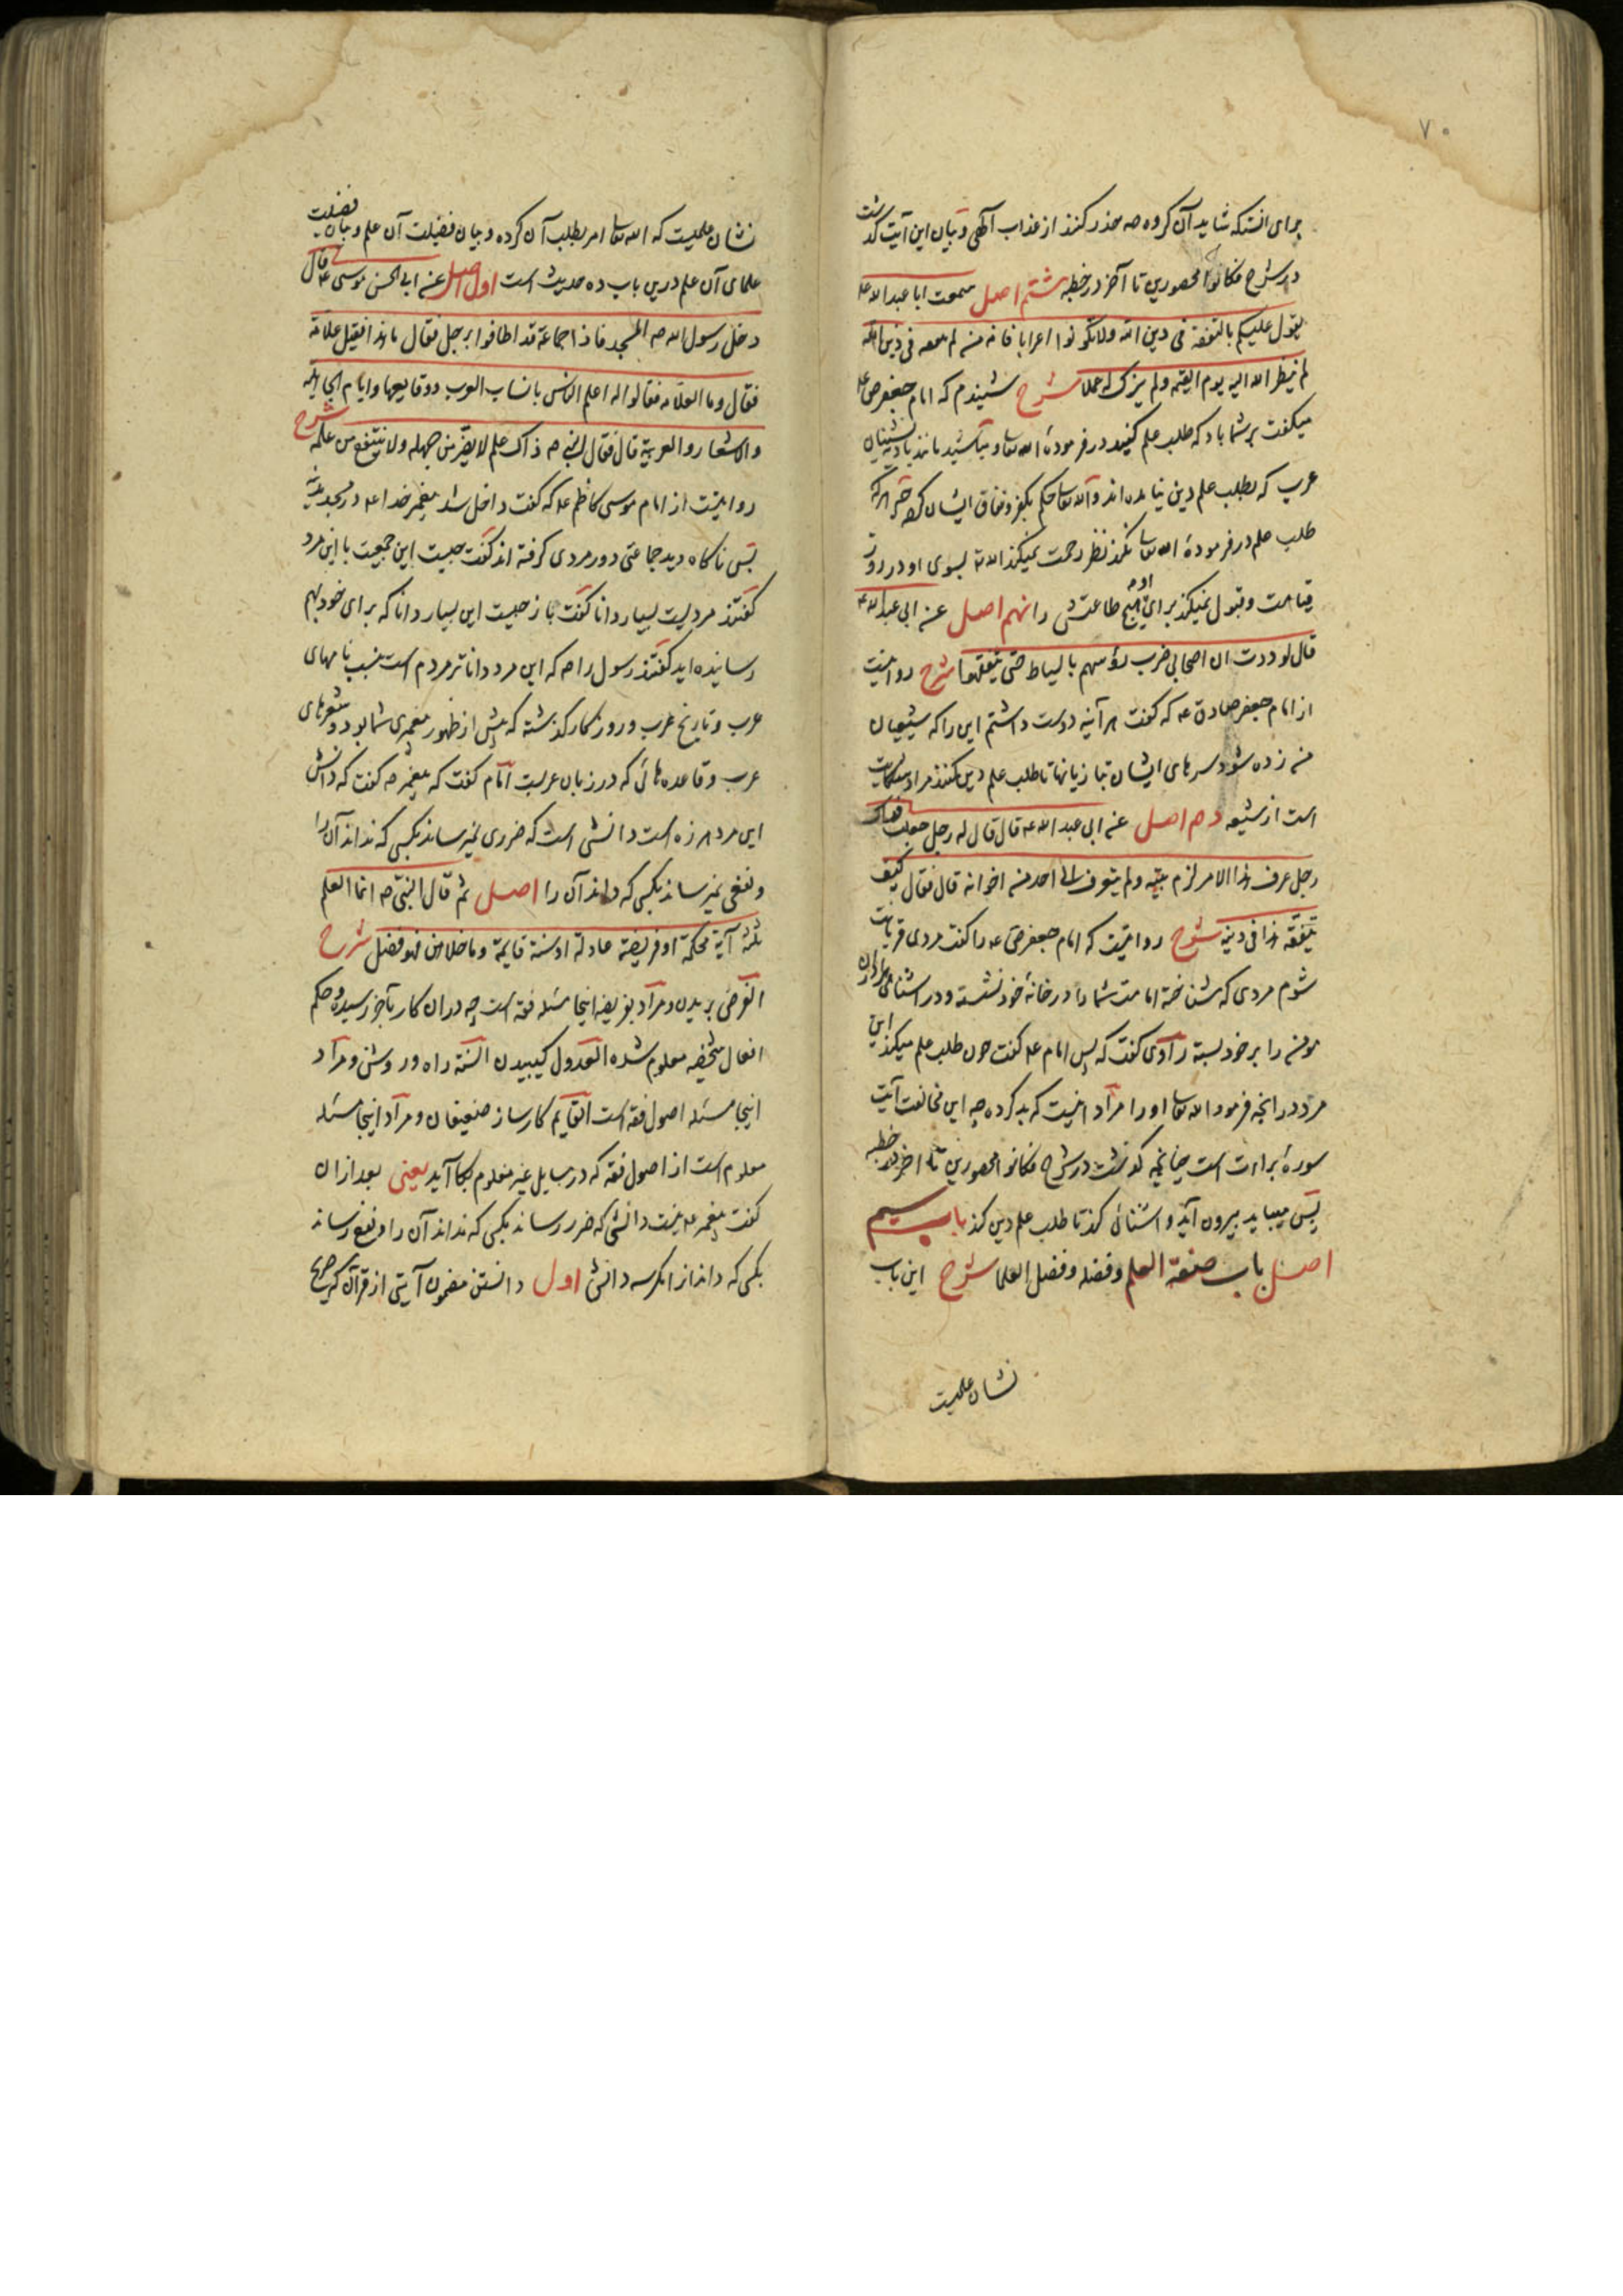 ۷۰
برای انستکه شاید آن کروه صه حذر کنند از عذاب آلهی و بیان این آیت کذشت
در شرح فکانوا محصورین تا آخر در خطبه شتم اصل سمعت ابا عبد الله ع
یقول علیکم بالتفقه فی دین الله ولا تکونوا اعرابا فانه من لم یتفقه فی دین الله
لم ینظر الله الیه یوم القیمة ولم یزک له عملا شرح شنیدم که امام جعفر ص ع
میکفت بر شما باد که طلب علم کنید در فرمودهٔ الله تعا و مباشید مانند بادیه نشینان
عرب که بطلب علم دین نیامده اند و الله تعا حکم بکفر و نفاق ایشان کرده چه هر که
طلب علم در فرمودهٔ الله تعا نکند نظر رحمت نمیکند الله تع بسوی او در روز
قیامت و قبول نمیکند برای او هیچ طاعتش را نهم اصل عن ابی عبد الله ع
قال لوددت ان اصحابی ضرب رؤسهم بالسیاط حتی یتفقهوا شرح روایتست
از امام جعفر صادق ع که کفت هر آینه دوست داشتم این را که شیعیان
من زده شود سرهای ایشان بتازیانها تا طلب علم دین کنند مراد
است از شیعه دهم اصل عن ابی عبد الله ع قال قال له رجل جعلت فداک
رجل عرف هذا الامر لزم بیته ولم یتعرف الی احد من اخوانه قال فقال کیف
یتفقه هذا فی دینه شرح روایتست که امام جعفر ص ع را کفت مردی قربانت
شوم مردی که شناخته امامت شما را در خانهٔ خود نشسته و در اشنائی برادران
مومن را بر خود بسته راوی کفت که پس امام ع کفت چون طلب علم میکند این
مرد در انچه فرمود الله تعا او را مراد اینست که بد کرده چه این مخالفت آیت
سورهٔ براءت است چنانچه کذشت در شرح فکانوا محصورین تا اخر در خطبه
پس میباید بیرون آید و اشنائی کند تا طلب علم دین کند باب سیم
اصل باب صفة العلم وفضله وفضل العلما شرح این باب
نشان علمیست
نشان علمیست که الله تعا امر بطلب آن کرده و بیان فضیلت آن علم و بیان فضیلت
علمای آن علم درین باب ده حدیث است اول اصل عن ابی الحسن موسی ع قال
دخل رسول الله صه المسجد فاذا جماعة قد اطافوا برجل فقال ما هذا فقیل علامة
فقال وما العلامه فقالوا له اعلم الناس بانساب العرب ووقایعها وایام الجاهلیه
والاشعار والعربیة قال فقال النبی صه ذاک علم لا یضر من جهله ولا ینتفع من علمه شرح
روایتست از امام موسی کاظم ع که کفت داخل شد پیغمبر خدا ع در مسجد مدینه
پس ناکاه دید جماعتی دور مردی کرفته اند کفت چیست این جمعیت با این مرد
کفتند مردیست بسیار دانا کفت باز چیست این بسیار دانا که برای خود بهم
رسانیده اید کفتند رسول را صه که این مرد داناتر مردم است بنسب نامهای
عرب و تاریخ عرب و روزکار کذشته که پیش از ظهور پیغمبری شما بود و شعرهای
عرب و قاعده هائی که در زبان عربست امام کفت که پیغمبر صه کفت که دانش
این مرد هرزه است دانشی است که ضرری نمیرساند بکسی که نداند آن را
و نفعی نمیرساند بکسی که داند آن را اصل ثم قال النبی صه انما العلم
ثلثة آیة محکمة او فریضة عادلة او سنة قایمة وما خلاهن فهو فضل شرح
الفرض بریدن و مراد بفریضه اینجا مسئله فقه است چه در ان کار بآخر رسیده و حکم
افعال شخصیه معلوم شده العدول کیبیدن السنة راه و روشن و مراد
اینجا مسئله اصول فقه است القایم کارساز ضعیفان و مراد اینجا مسئله
معلوم است از اصول فقه که در مسایل غیر معلوم بکار آید یعنی بعد از ان
کفت پیغمبر ع نیست دانشی که ضرر رساند بکسی که نداند آن را و نفع رساند
بکسی که داند از مکر سه دانش اول دانستن مضمون آیتی از قرآن که صریح